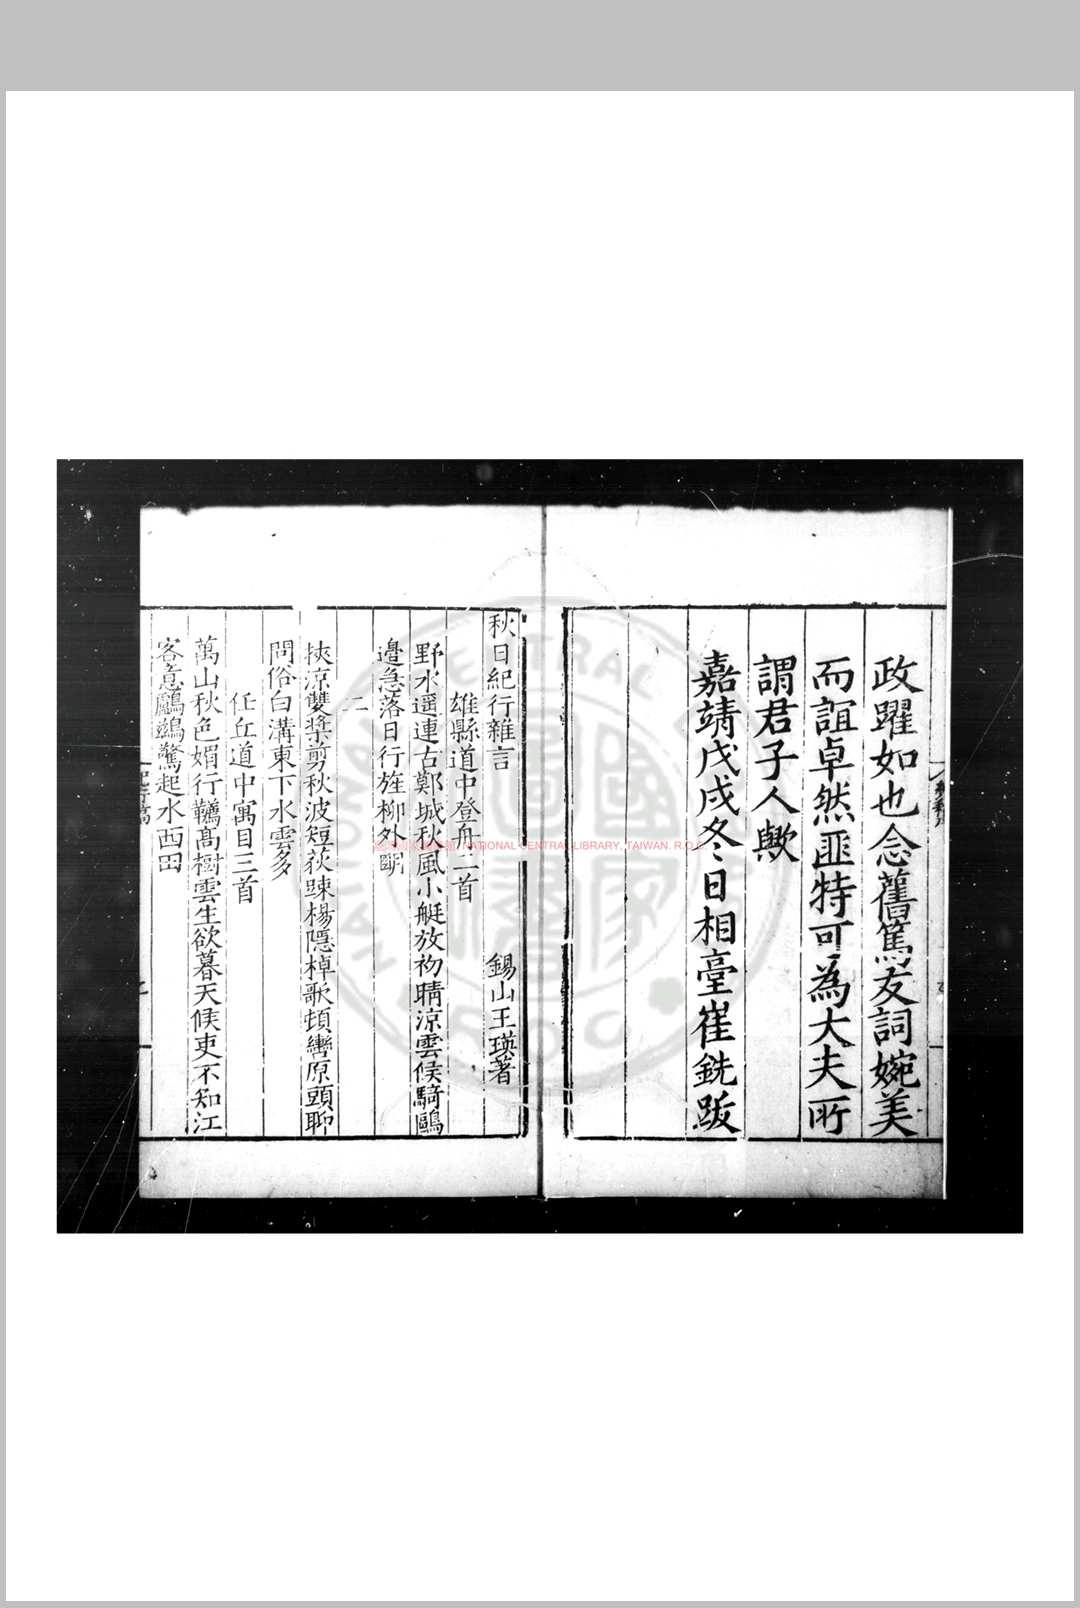 政躍如也念舊篤友詞婉美
而誼卓然匪特可為大夫所
謂君子人歟
嘉靖戊戌冬日相臺崔銑跋
秋日紀行雜言
錫山王瑛著
雄縣道中登舟二首
野水遥連古鄚城秋風小艇放初晴涼雲候騎鷗
邊急落日行旌柳外明
二
挾涼雙槳剪秋波短荻踈楊隱棹歌頓轡原頭聊
問俗白溝東下水雲多
任丘道中寓目三首
萬山秋色媚行韉髙樹雲生欲暮天候吏不知江
客意鸕鷀驚起水西田
NATIONAL CENTRAL LIBRARY, TAIWAN. R.O.C.